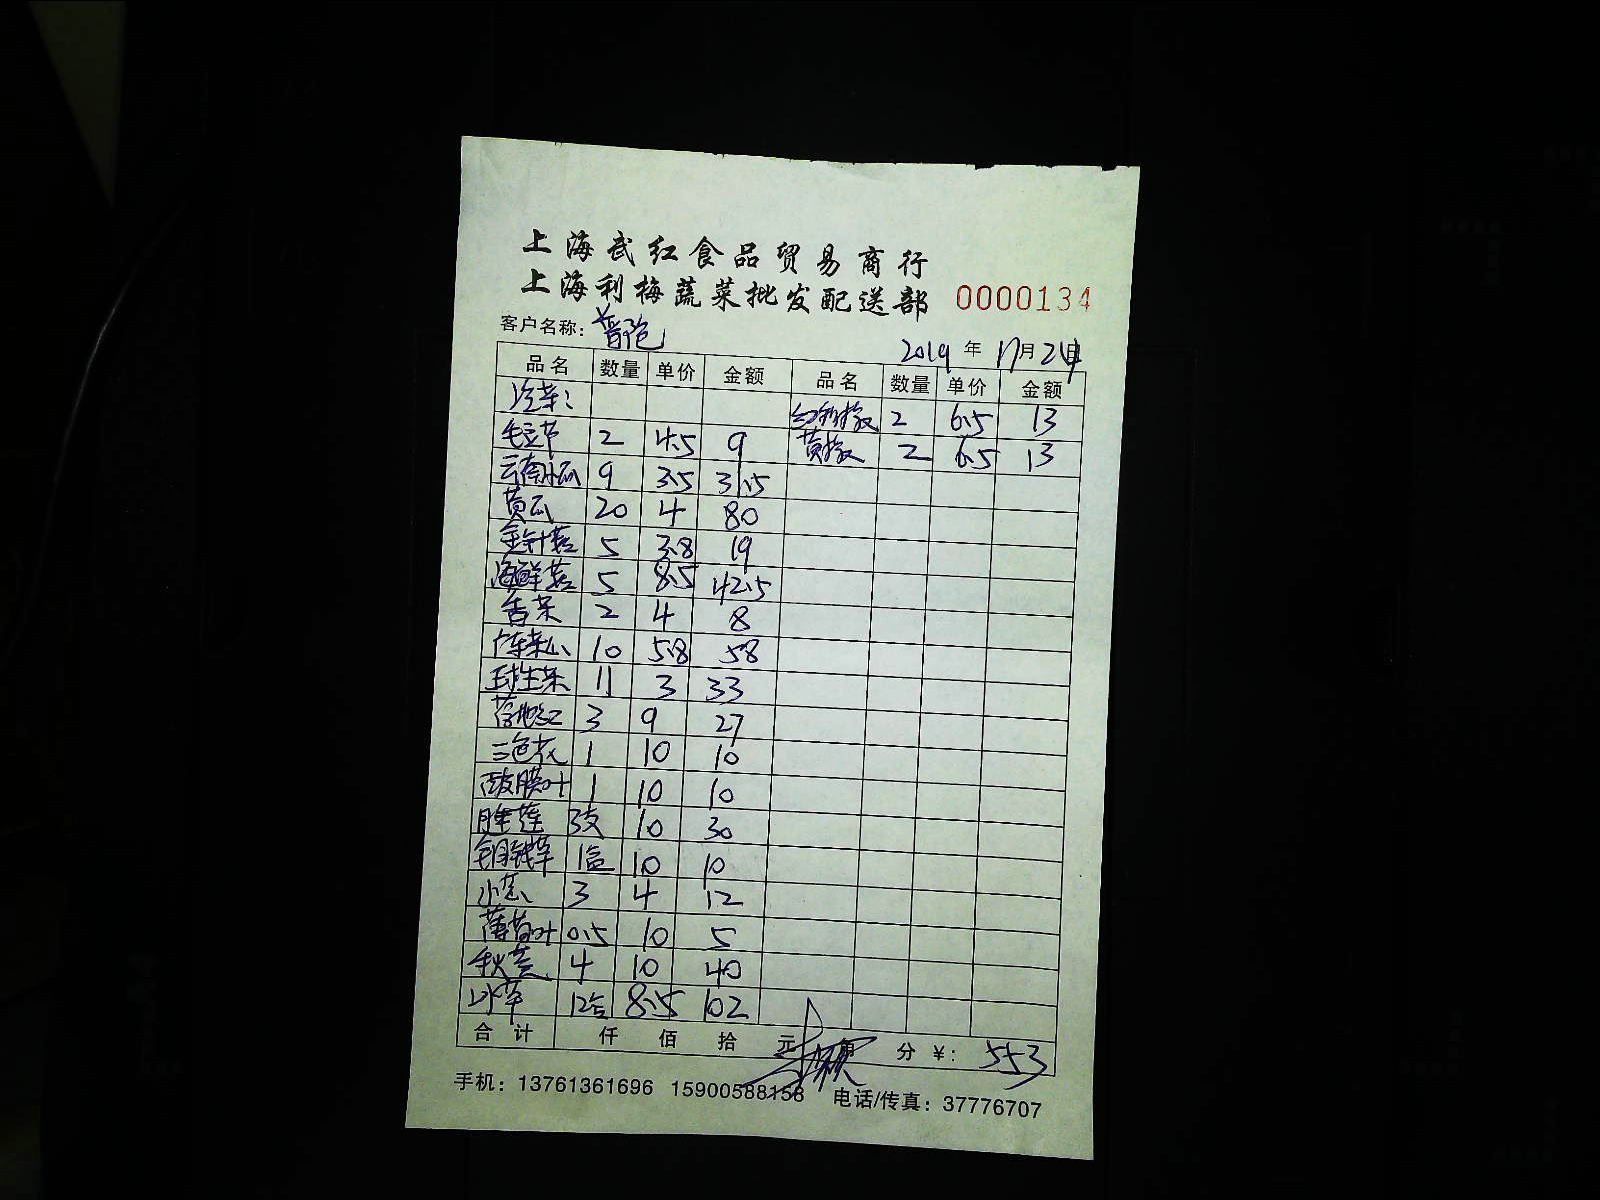 上海武红食品贸易商行
上海利梅蔬菜批发配送部 0000134
客户名称：
2019 年 月 日
品名 数量 单价 金额 品名 数量 单价 金额
2 6.5 13
毛豆节 2 4.5 9 黄椒 2 6.5 13
云南小瓜 9 3.5 31.5
黄瓜 20 4 80
金针菇 5 3.8 19
海鲜菇 5 8.5 42.5
香菜 2 4 8
广东菜心 10 5.8 58
球生菜 11 3 33
落地红 3 9 27
三色花 1 10 10
1 10 10
睡莲 3支 10 30
铜钱草 1盒 10 10
小葱 3 4 12
薄荷叶 0.5 10 5
秋葵 4 10 40
冰草 12盒 8.5 102
合计 仟 佰 拾 元 角 分 ¥: 553
手机：13761361696 15900588158 电话/传真：37776707